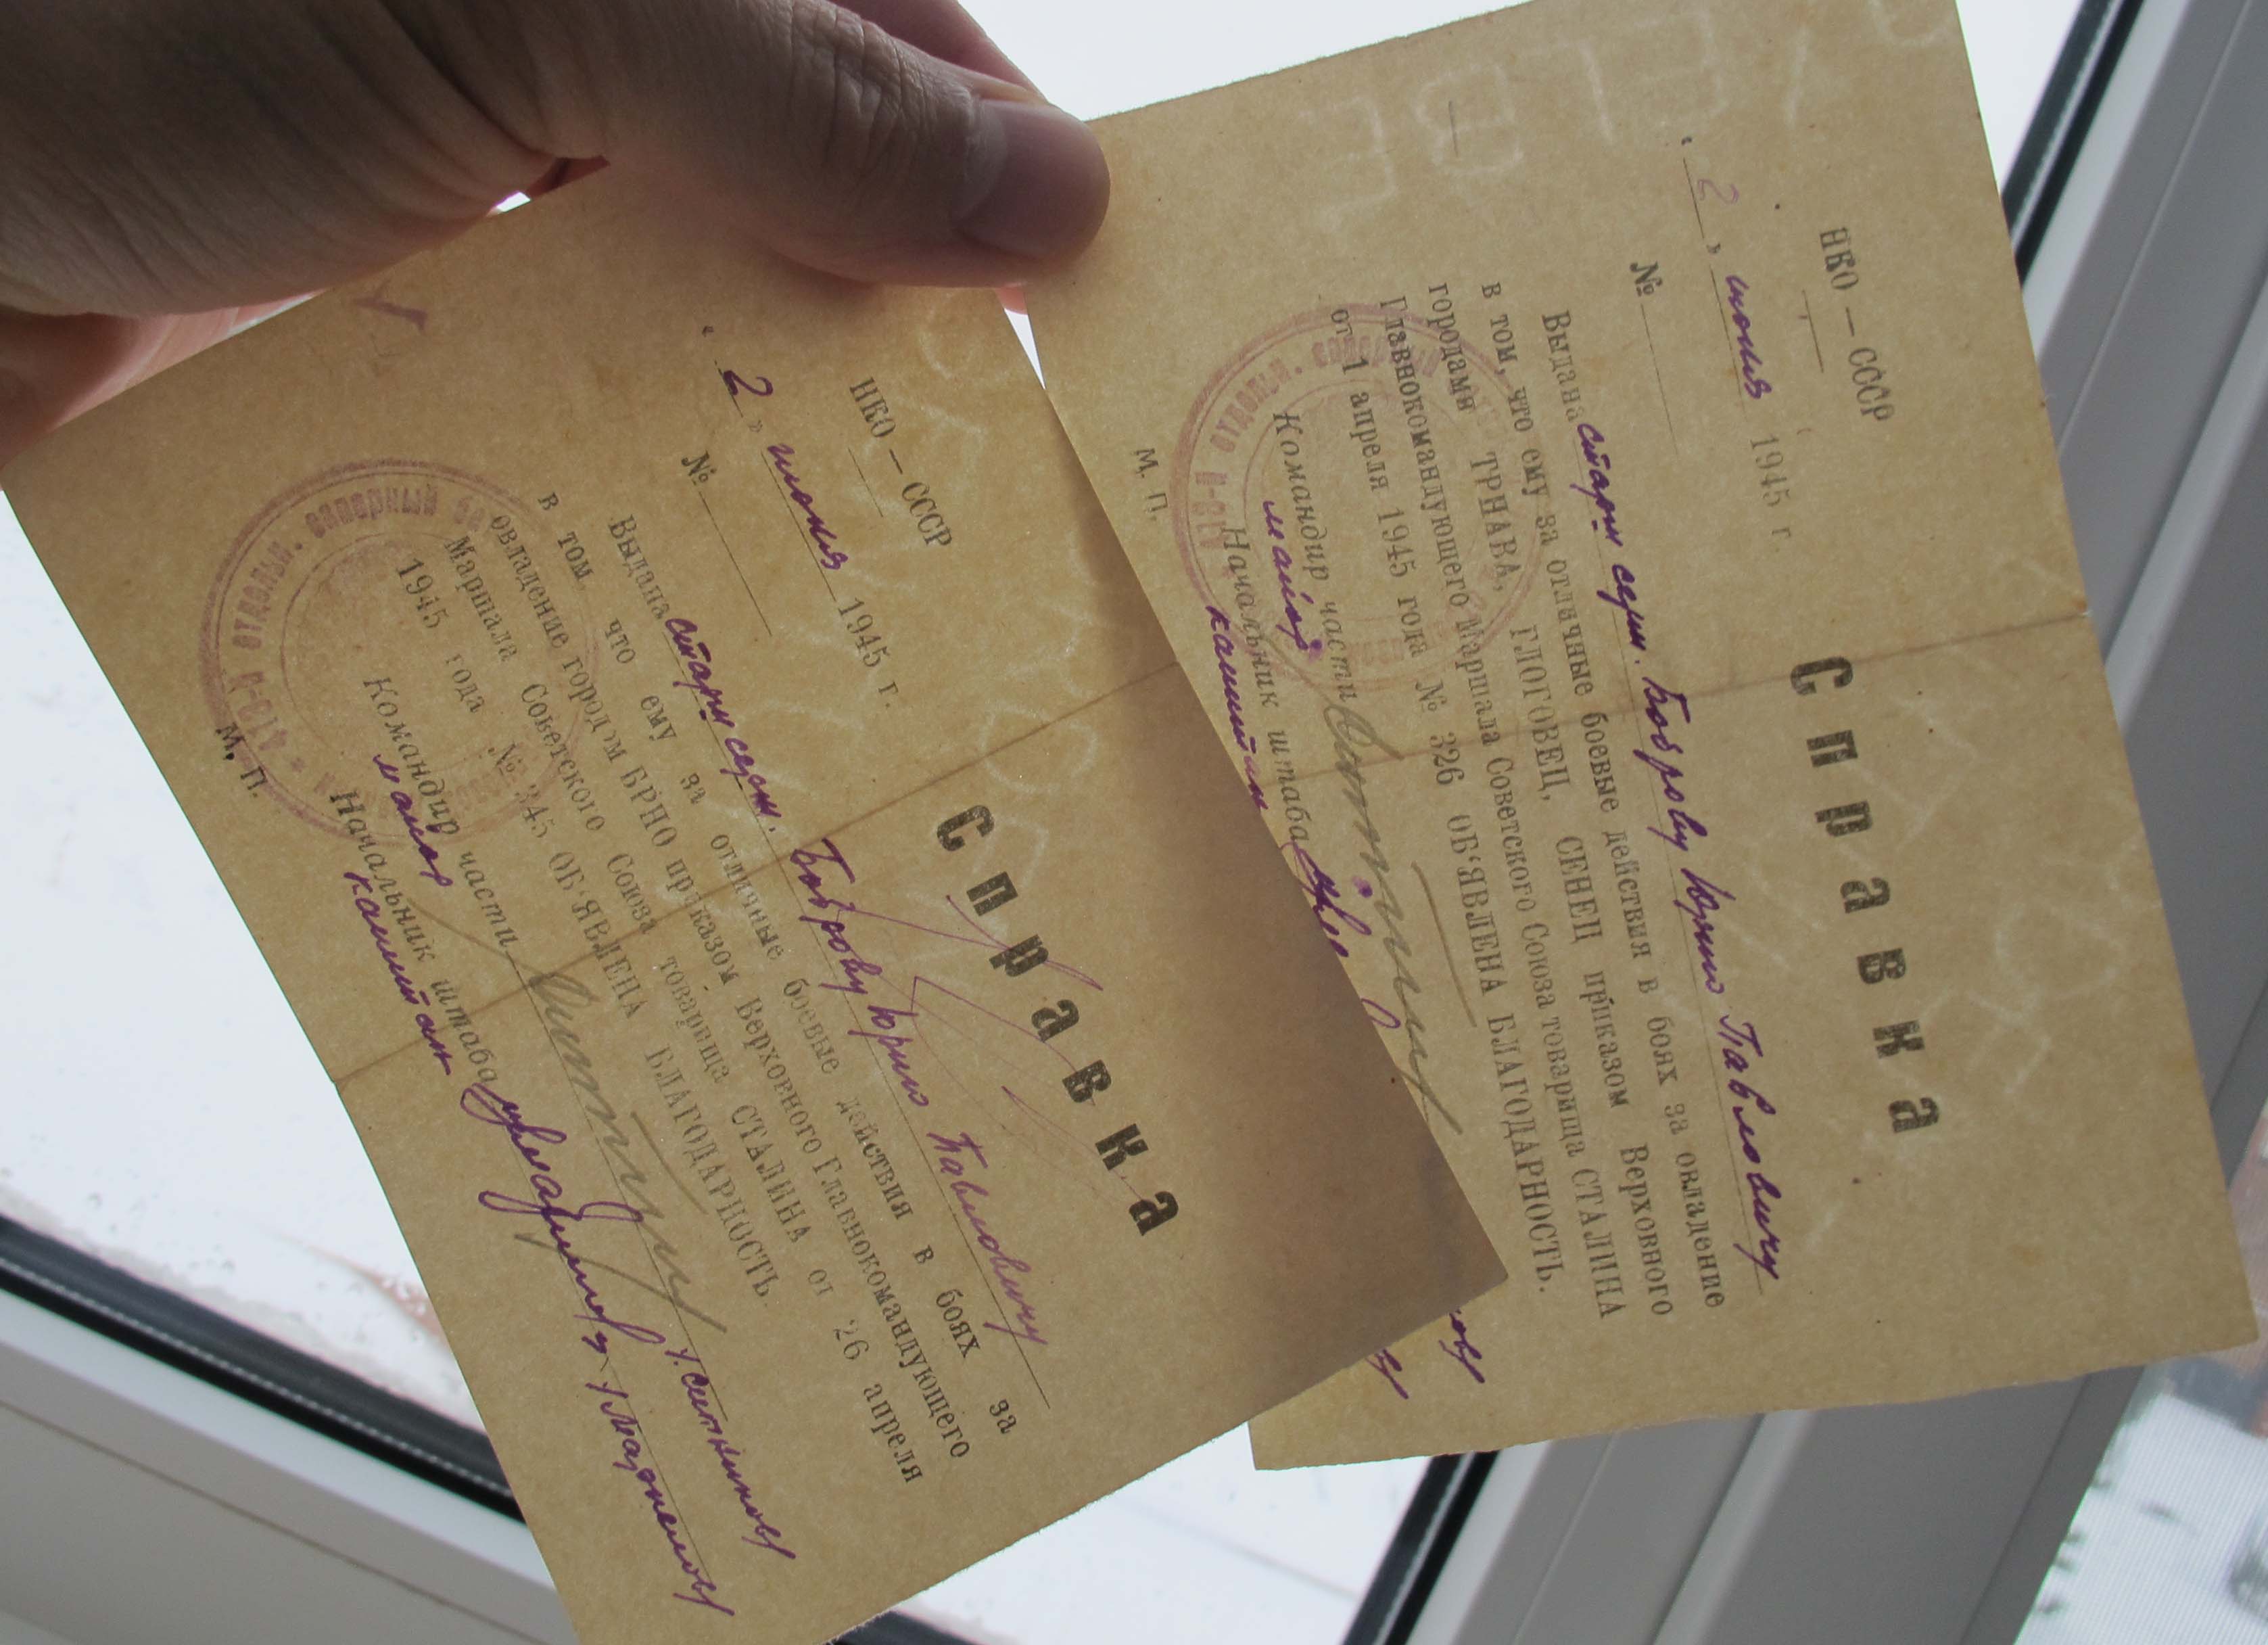 НКО — СССР
" 2 " июня 1945 г.
№
Справка
Выдана старш серж. Боброву Юрию Павловичу
в том, что ему за отличные боевые действия в боях за
овладение городом БРНО приказом Верховного Главнокомандующего
Маршала Советского Союза товарища СТАЛИНА от 26 апреля
1945 года № 345 ОБ'ЯВЛЕНА БЛАГОДАРНОСТЬ.
Командир части
майор /Ситников/
Начальник штаба
капитан
М. П.
419-й отдельн. саперный
НКО — СССР
" 2 " июня 1945 г.
№
Справка
Выдана старш серж. Боброву Юрию Павловичу
в том, что ему за отличные боевые действия в боях за овладение
городами ТРНАВА, ГЛОГОВЕЦ, СЕНЕЦ приказом Верховного
Главнокомандующего Маршала Советского Союза товарища СТАЛИНА
от 1 апреля 1945 года № 326 ОБ'ЯВЛЕНА БЛАГОДАРНОСТЬ.
Командир части
майор
Начальник штаба
капитан
М. П.
отдельн. саперный